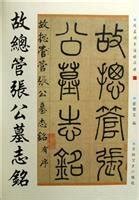 故總管張
公墓志銘
故總管張公墓志銘 有序
故總管張公墓志銘